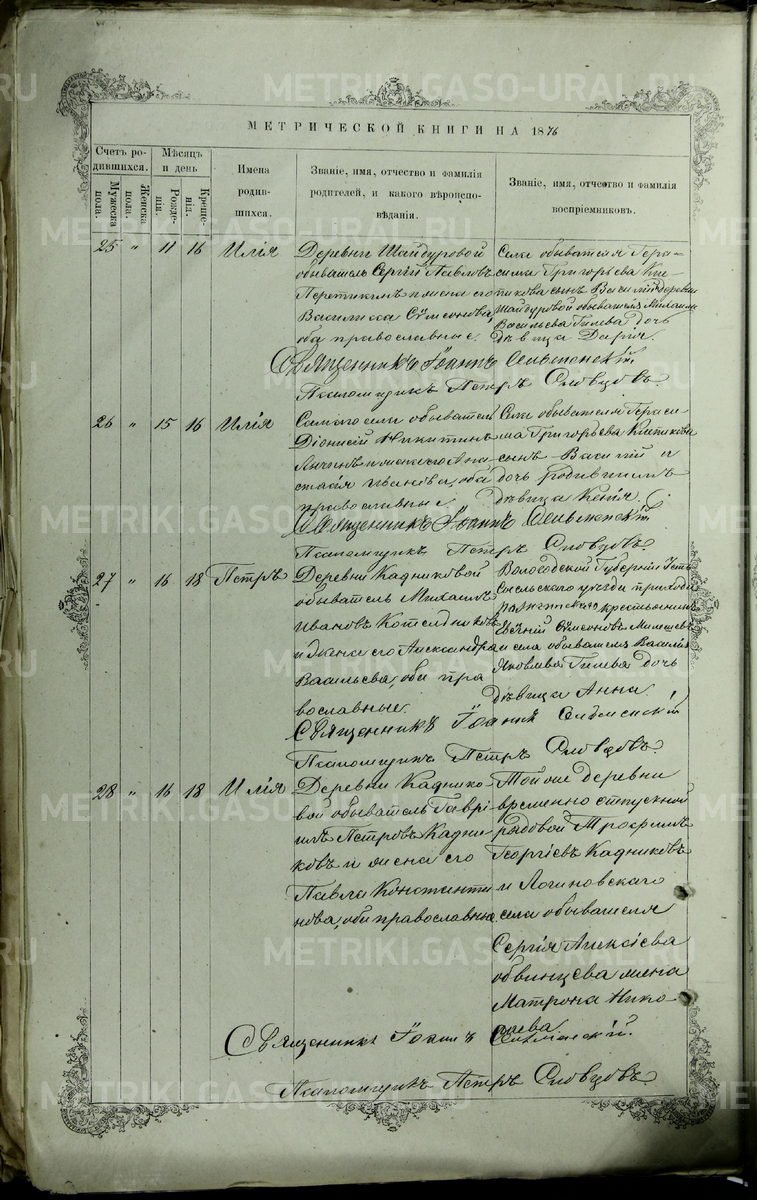 МЕТРИЧЕСКОЙ КНИГИ НА 1876
Счетъ ро-
дившихся.
Мужеска
пола.
Женска
пола.
Мѣсяцъ
и день
Рожде-
нія.
Креще-
нія.
Имена
родив-
шихся.
Званіе, имя, отчество и фамилія
родителей, и какого вѣроиспо-
вѣданія.
Званіе, имя, отчество и фамилія
воспріемниковъ.
25 " 11 16 Илія
Деревни Шайдуровой
обыватель Сергій Павловъ
и жена его
Василисса Сѵмеонова,
оба православные.
Села обывателя Гера-
сима Григорьева
сынъ Василій и деревни
Шайдуровой обывателя
Васильева Гилева дочь
дѣвица Дарія.
Священникъ Іоаннъ Сельменскій
Псаломщикъ Петръ Словцовъ.
26 " 15 16 Илія
Самаго села обыватель
Діонисій Никитинъ
и жена его Ана
стасія Иванова, оба
православные
Села обывателя Гераси
ма Григорьева
сынъ Василій и
дочь родившимъ
дѣвица
Священникъ Іоаннъ Сельменскій
Псаломщикъ Петръ Словцовъ.
27 " 16 18 Петръ
Деревни Кадниковой
обыватель Михаилъ
Ивановъ Котельниковъ
и жена его Александра
Васильева, оба пра
вославные.
Вологодской Губерніи Усть
Сысольскаго уѣзда прихода
крестьянинъ
Сѵмеоновъ
и села обывателя Василія
Яковлева Гилева дочь
дѣвица Анна.
Священникъ Іоаннъ Сельменскій
Псаломщикъ Петръ Словцовъ.
28 " 16 18 Илія
Деревни Каднико
вой обыватель Гаврі
илъ Петровъ Кадни
ковъ и жена его
Павла Константи
нова, оба православные.
Той же деревни
временно отпускной
рядовой Трофимъ
Георгіевъ Кадниковъ
и Логиновскаго
села обывателя
Сергія Алексіева
Обвинцева жена
Матрона Нико
лаева
Священникъ Іоаннъ Сельменскій.
Псаломщикъ Петръ Словцовъ.
METRIKI.GASO-URAL.RU